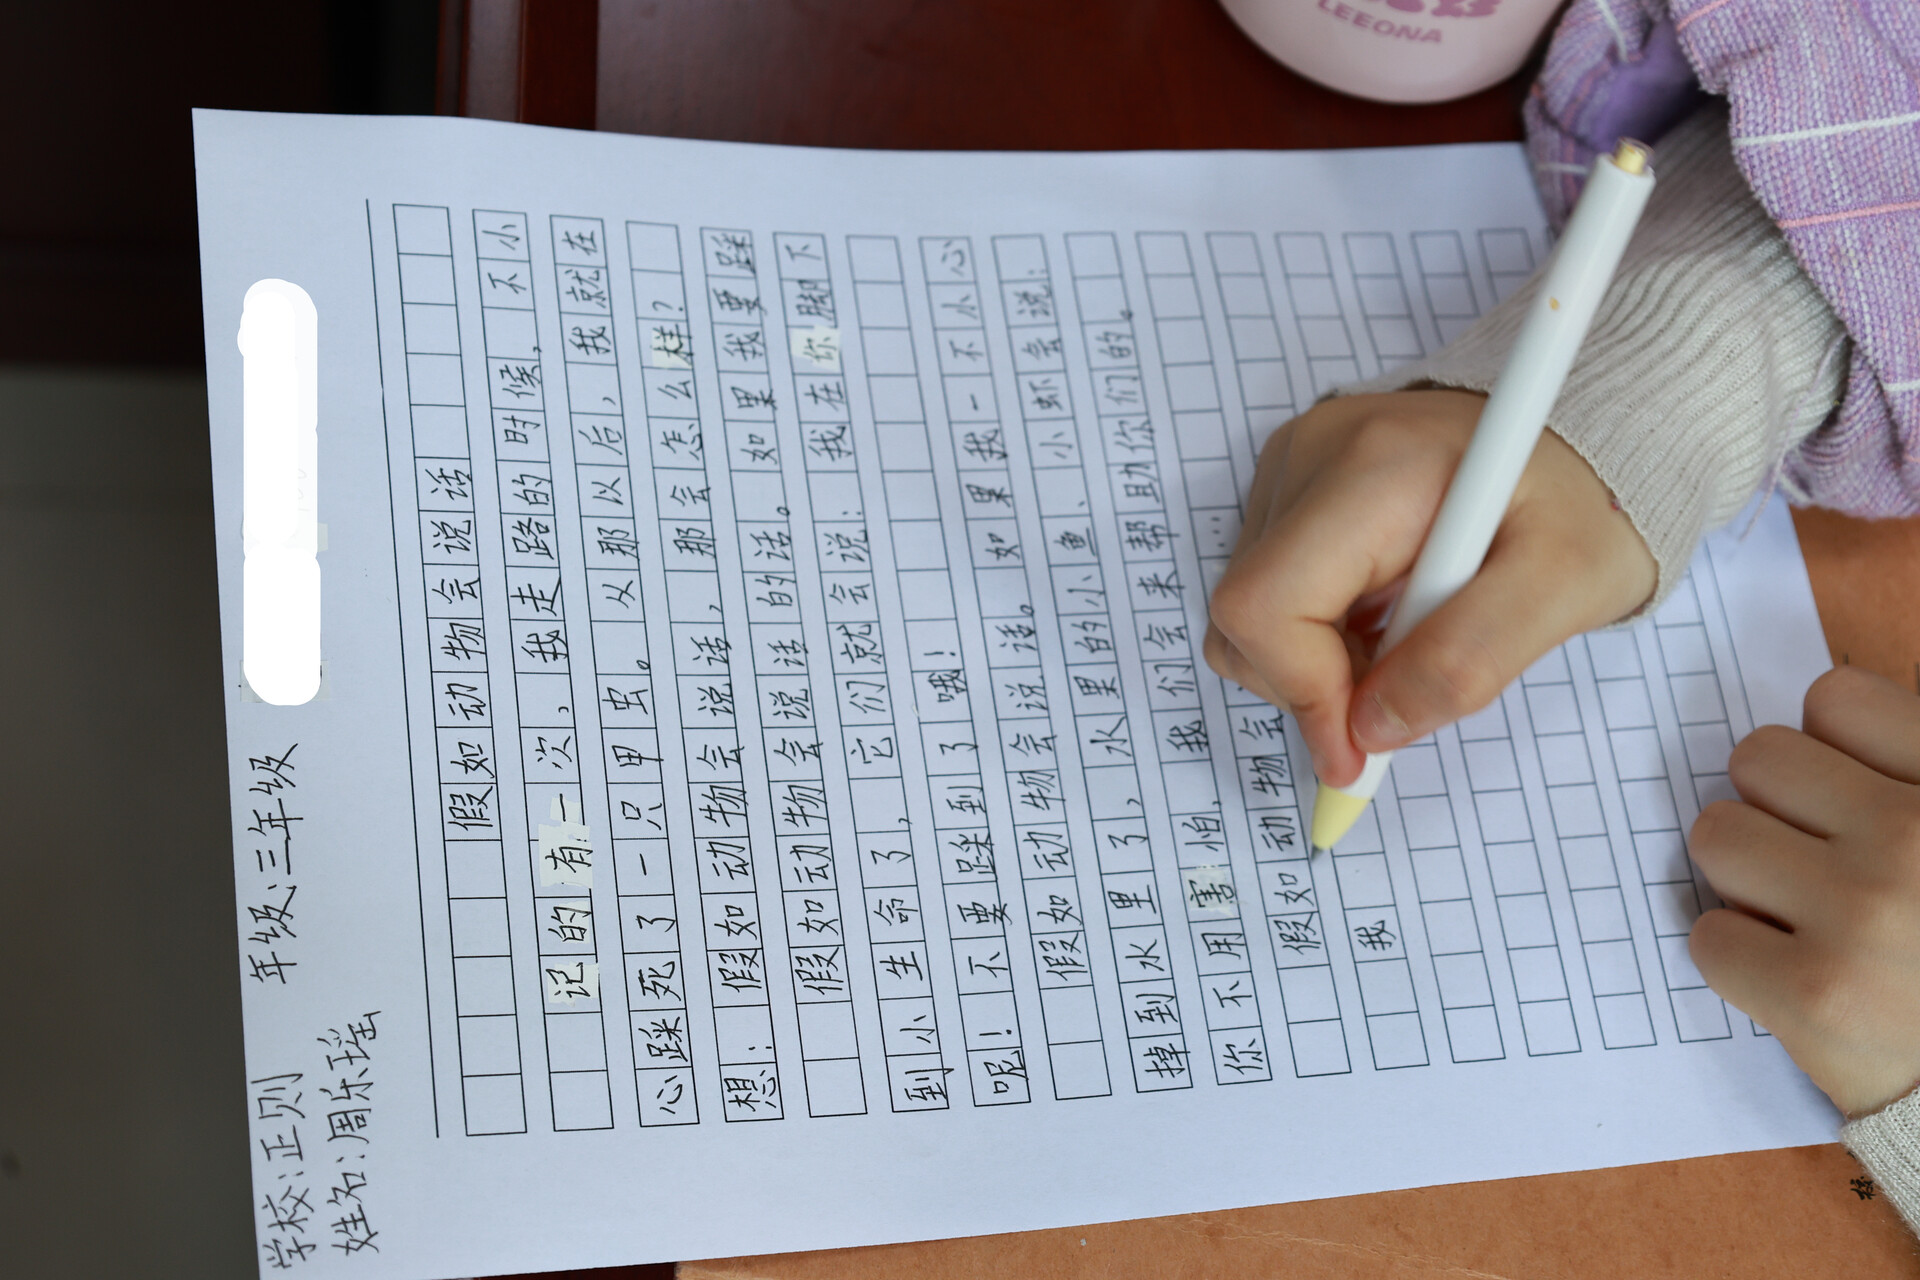 学校:正则 年级:三年级
姓名:周乐瑶
假如动物会说话
记的有一次、我走路的时候，不小
心踩死了一只甲虫。从那以后，我就在
想：假如动物会说话，那会怎么样？
假如动物会说话的话。如果我要踩
到小生命了，它们就会说：我在你脚下
呢！不要踩到了哦！
假如动物会说话。如果我一不小心
掉到水里了，水里的小鱼、小虾会说：
你不用害怕，我们会来帮助你们的。
假如动物会
我
LEEONA